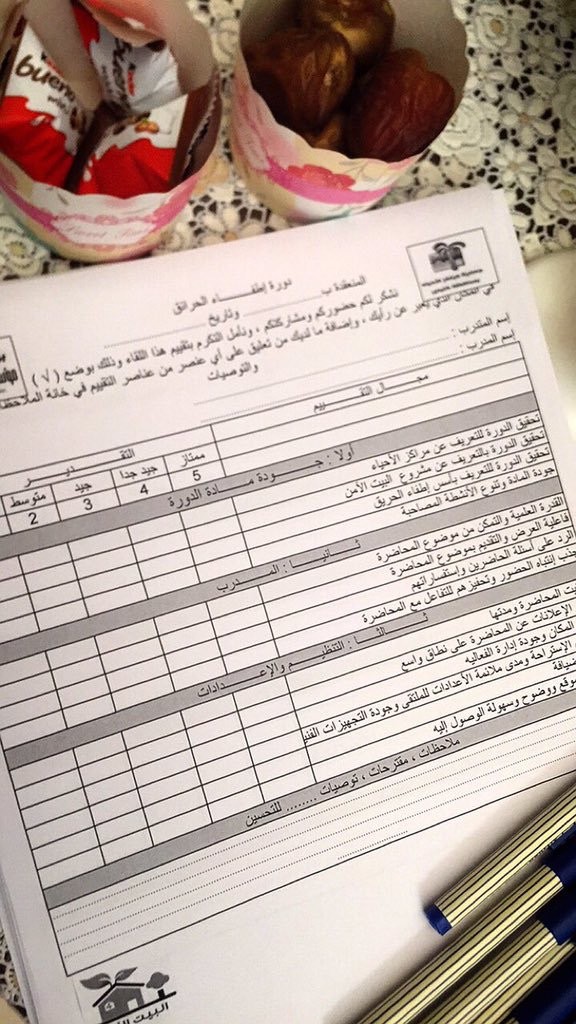 bueno
bueno
دورة إطفـــاء الحرائق
المنعقدة ب............... وتاريخ ...............
نشكر لكم حضوركم ومشاركتكم ، ونأمل التكرم بتقييم هذا اللقاء وذلك بوضع ( √ )
في المكان الذي يعبر عن رأيك ، وإضافة ما لديك من تعليق على أي عنصر من عناصر التقييم في خانة الملاحظات
والتوصيات
إسم المتدرب :
إسم المدرب :
مجـــال التقـــييم
التقـــديـــر
ممتاز جيد جدا جيد متوسط
5 4 3 2
أولا : جـــودة مـــادة الدورة
تحقيق الدورة للتعريف عن مراكز الأحياء
تحقيق الدورة بالتعريف عن مشروع البيت الآمن
تحقيق الدورة للتعريف بأسس إطفاء الحريق
جودة المادة وتنوع الأنشطة المصاحبة
ثـــانيـــا : المـــدرب
القدرة العلمية والتمكن من موضوع المحاضرة
فاعلية العرض والتقديم بموضوع المحاضرة
الرد على أسئلة الحاضرين وإستفساراتهم
جذب إنتباه الحضور وتحفيزهم للتفاعل مع المحاضرة
ثـــالثـــا : التنظيـــم والإعـــدادات
المحاضرة ومدتها
الإعلانات عن المحاضرة على نطاق واسع
المكان وجودة إدارة الفعاليه
الإستراحة ومدى ملائمة الأعدادات للملتقى وجودة التجهيزات الفنية
ووضوح وسهولة الوصول إليه
ملاحظات ، مقترحات ، توصيات ........ للتحسين
البيت